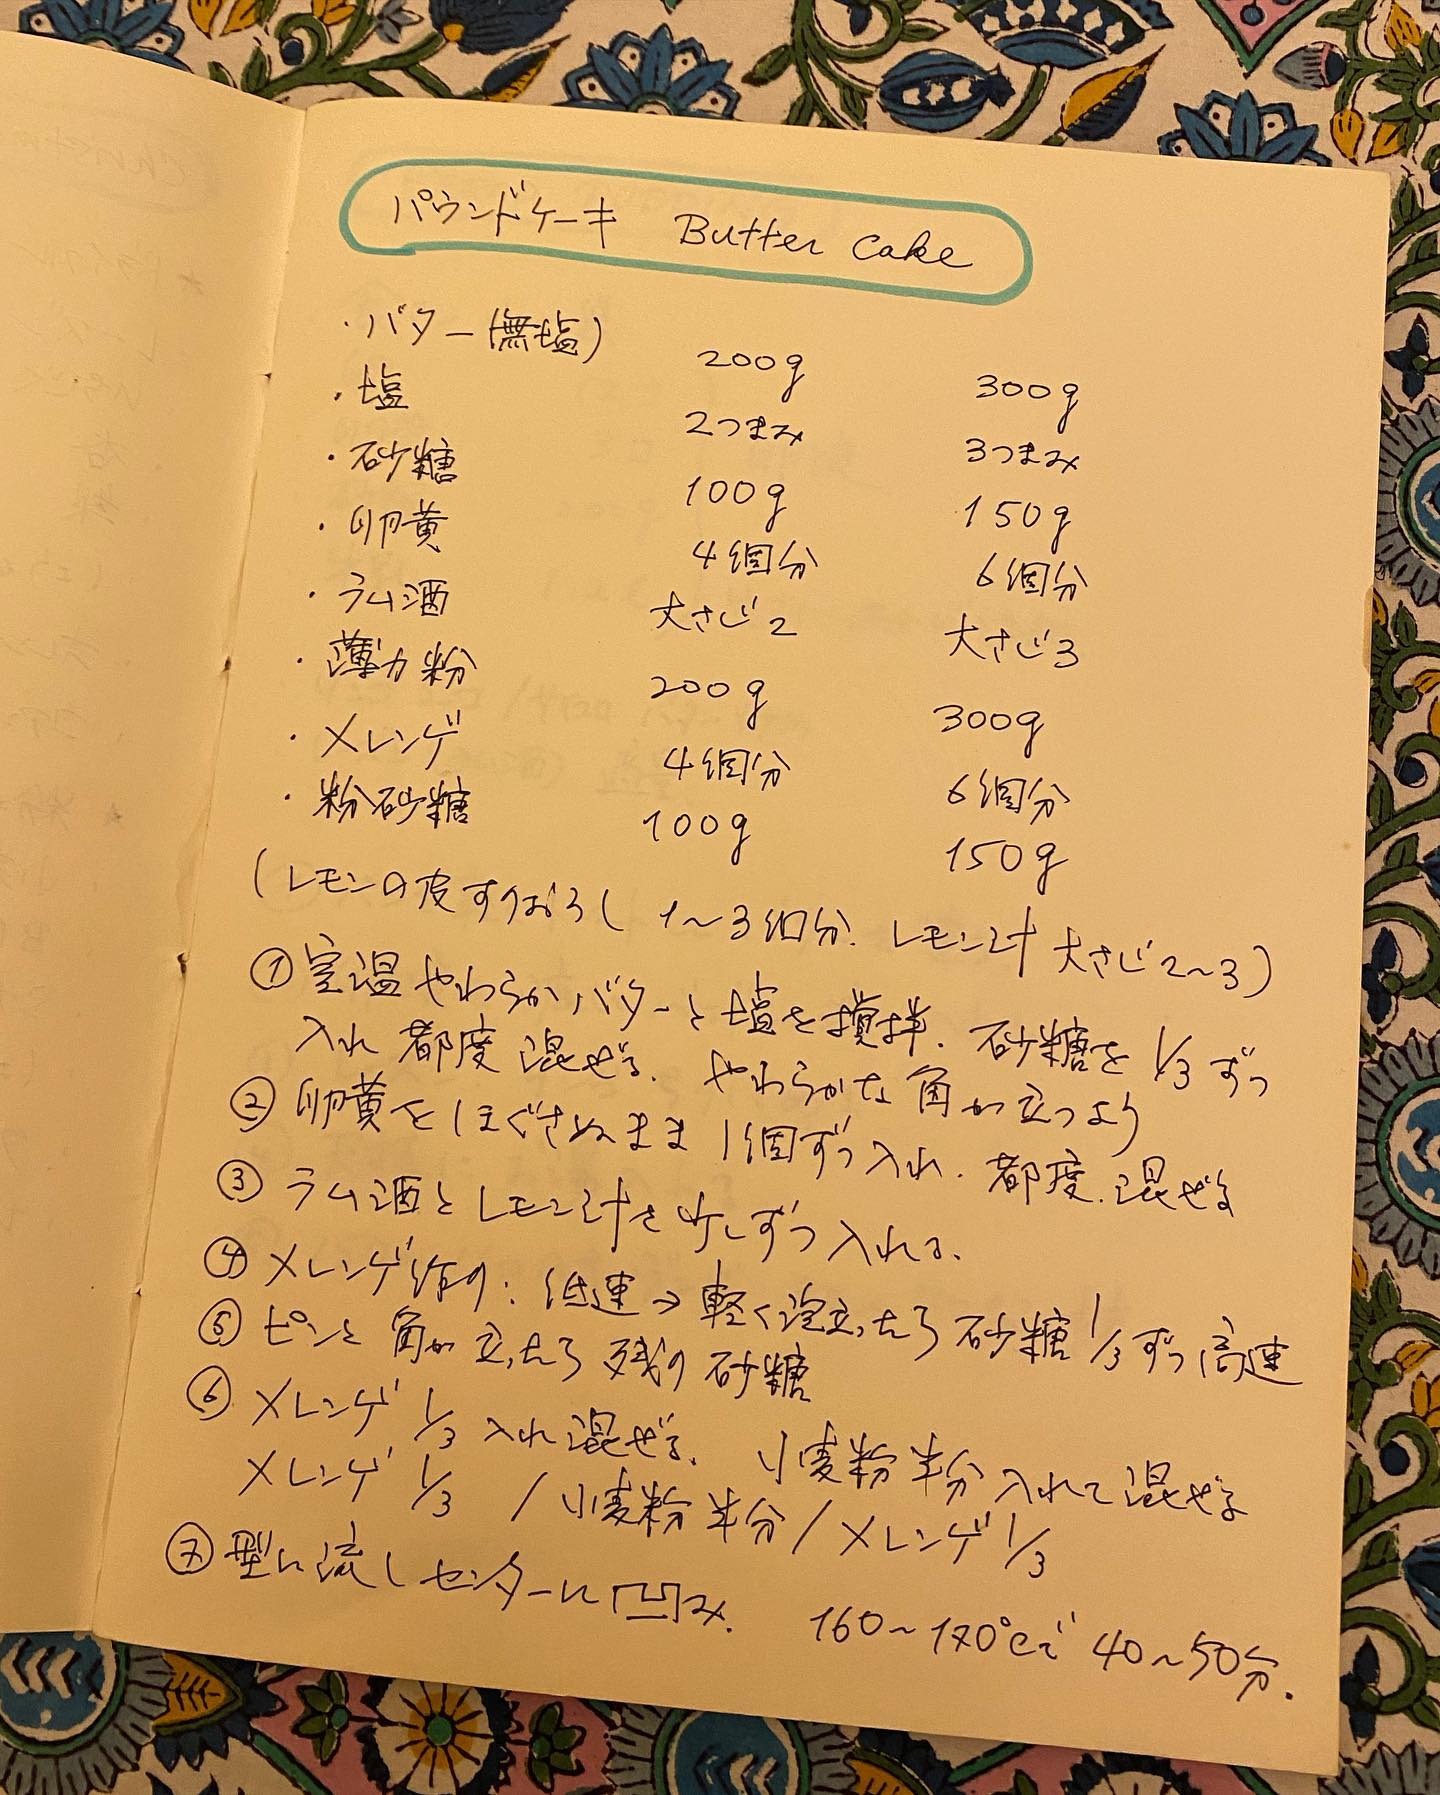 パウンドケーキ Butter Cake
・バター(無塩) 200g 300g
・塩 2つまみ 3つまみ
・砂糖 100g 150g
・卵黄 4個分 6個分
・ラム酒 大さじ2 大さじ3
・薄力粉 200g 300g
・メレンゲ 4個分 6個分
・粉砂糖 100g 150g
(レモンの皮すりおろし 1〜3個分. レモン汁 大さじ2〜3)
① 室温やわらかバターと塩を撹拌. 砂糖を1/3ずつ
入れ都度混ぜる. やわらかな角が立つより
② 卵黄をほぐさぬまま1個ずつ入れ. 都度.混ぜる
③ ラム酒とレモン汁を少しずつ入れる.
④ メレンゲ作り: 低速→軽く泡立ったら砂糖1/3ずつ高速
⑤ ピンと角が立ったら残り砂糖
⑥ メレンゲ1/3入れ混ぜる. 小麦粉半分入れて混ぜる
メレンゲ1/3 / 小麦粉半分 / メレンゲ1/3
⑦ 型に流しセンターに凹み. 160〜170℃で40〜50分.